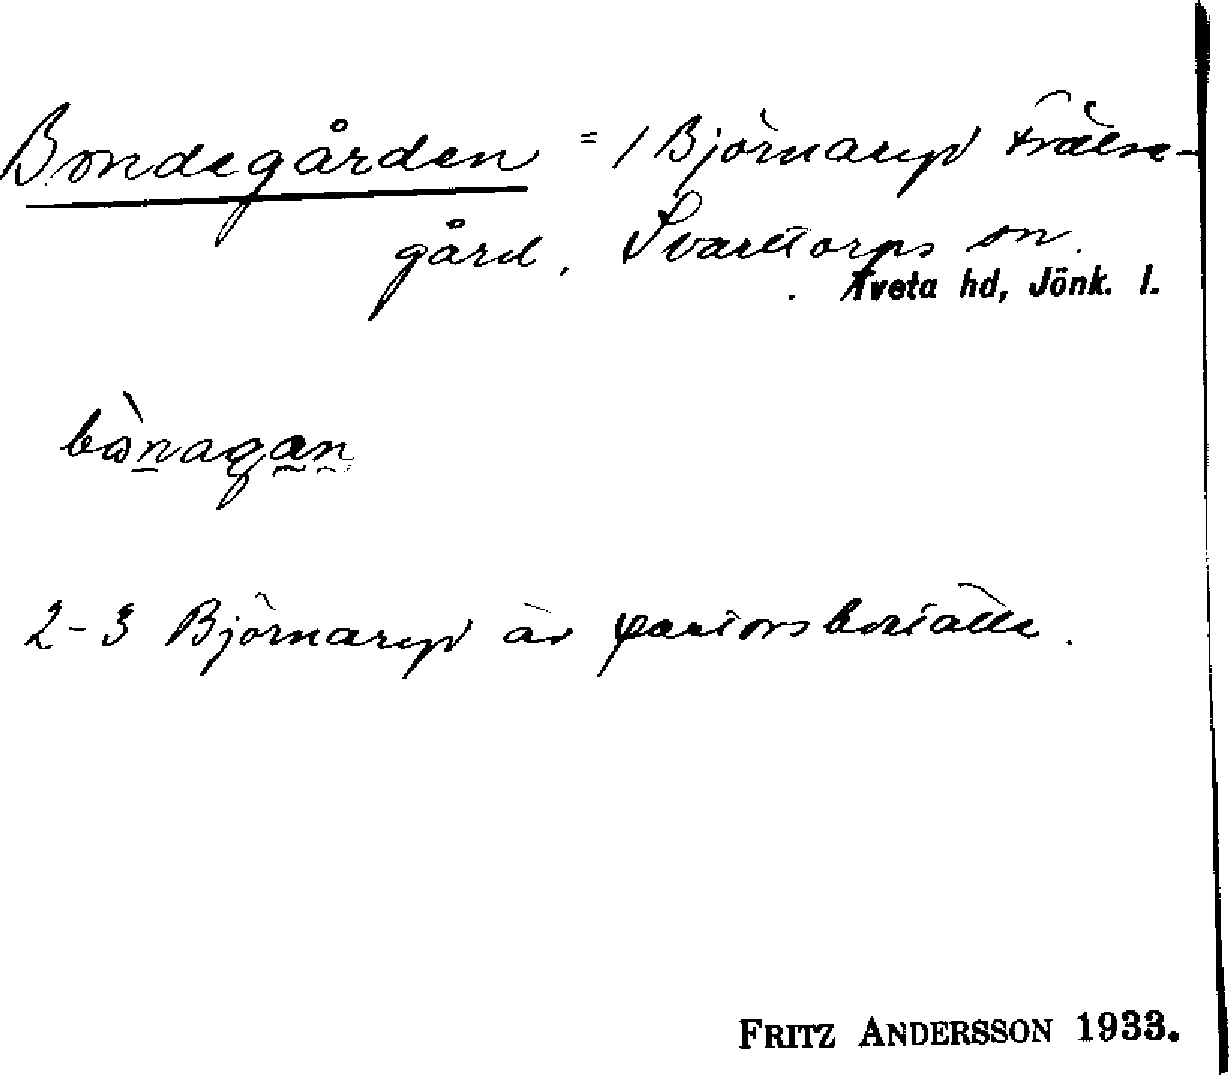 Bondegården = 1 Björnaryd Frälse-
gård, Svarttorps sn.
Tveta hd, Jönk. l.
bò̀nagan
2-3 Björnaryd är pastorsboställe.
FRITZ ANDERSSON 1933.